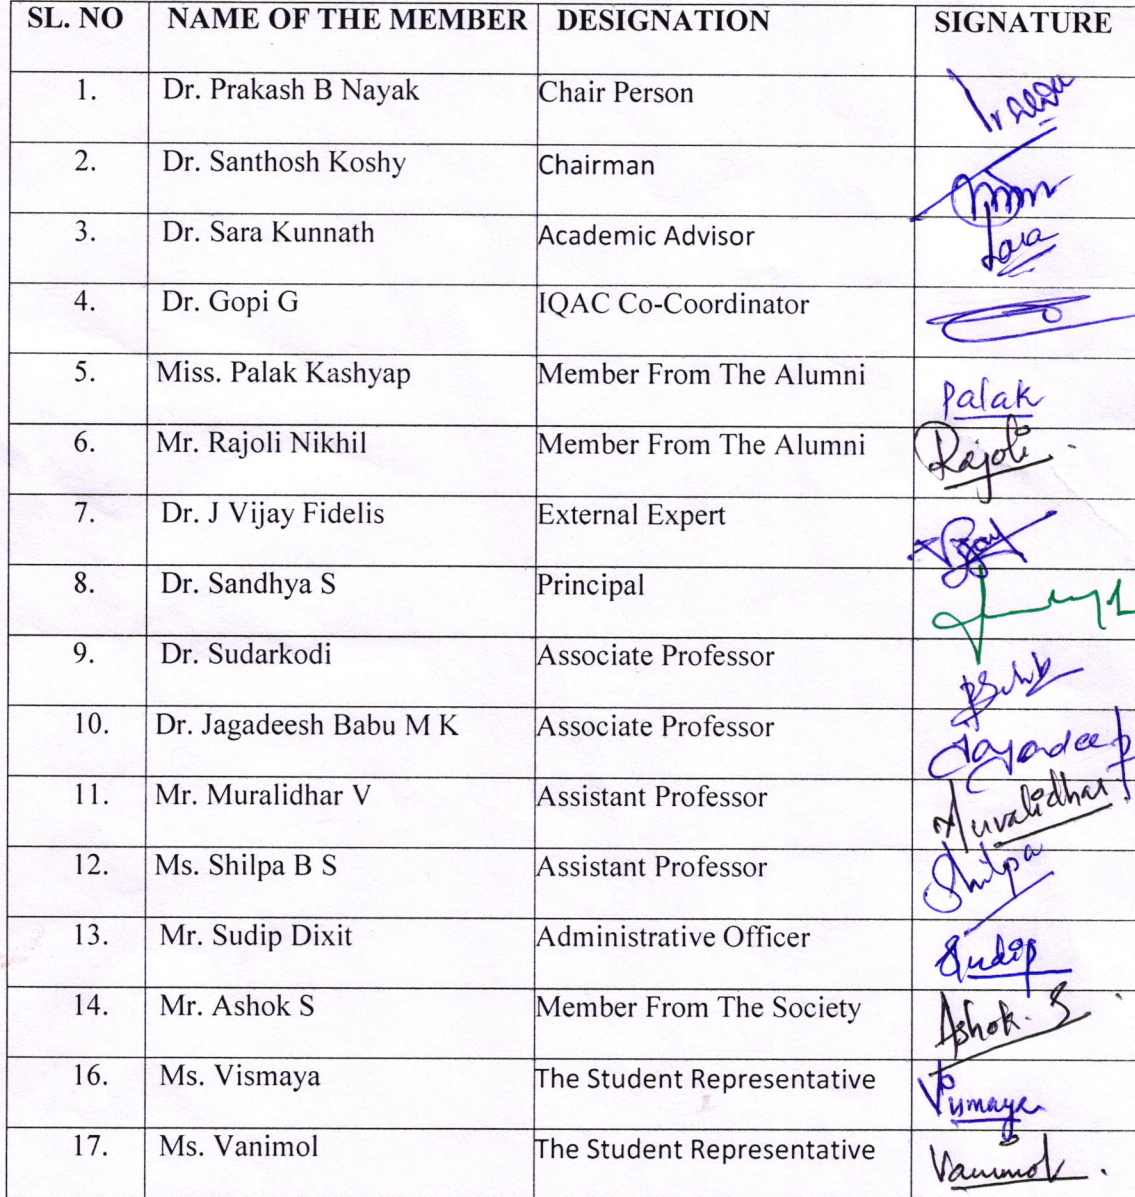 SL. NO NAME OF THE MEMBER DESIGNATION SIGNATURE
1. Dr. Prakash B Nayak Chair Person
2. Dr. Santhosh Koshy Chairman
3. Dr. Sara Kunnath Academic Advisor Sara
4. Dr. Gopi G IQAC Co-Coordinator
5. Miss. Palak Kashyap Member From The Alumni Palak
6. Mr. Rajoli Nikhil Member From The Alumni Rajoli
7. Dr. J Vijay Fidelis External Expert Vijay
8. Dr. Sandhya S Principal
9. Dr. Sudarkodi Associate Professor
10. Dr. Jagadeesh Babu M K Associate Professor
11. Mr. Muralidhar V Assistant Professor Muralidhar
12. Ms. Shilpa B S Assistant Professor Shilpa
13. Mr. Sudip Dixit Administrative Officer Sudip
14. Mr. Ashok S Member From The Society Ashok. S
16. Ms. Vismaya The Student Representative Vismaya
17. Ms. Vanimol The Student Representative Vanimol.